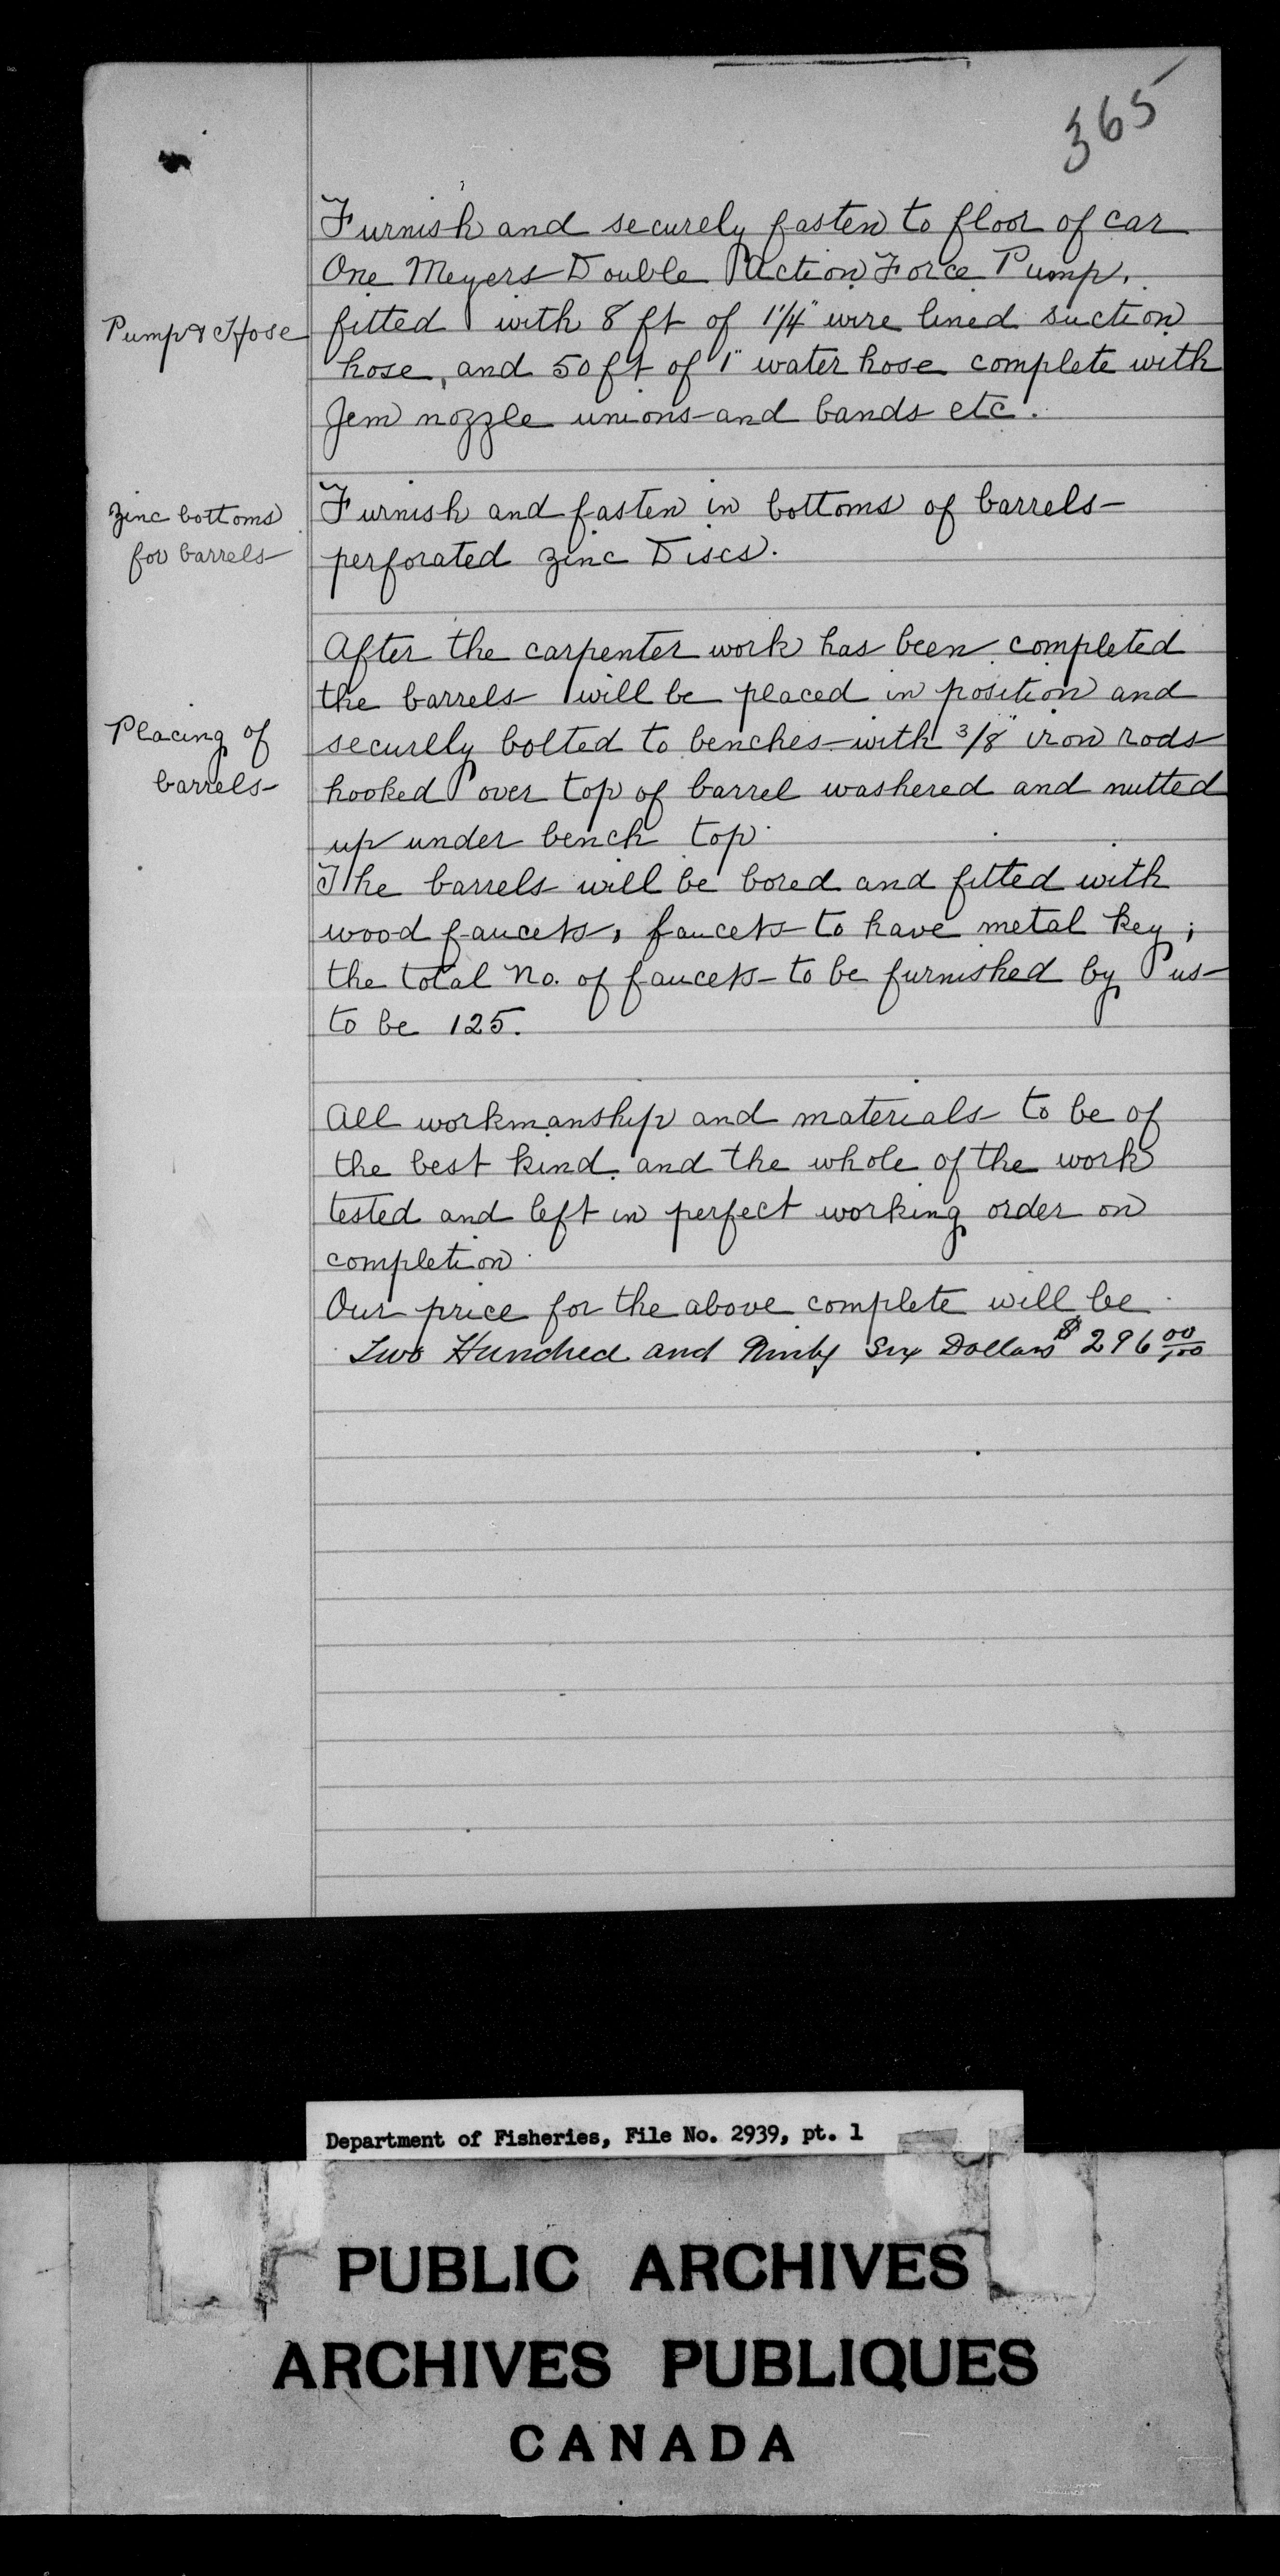 365
Furnish and securely fasten to floor of car
One Meyers Double Action Force Pump,
Pump & Hose
fitted with 8 ft of 1 1/4" wire lined suction
hose, and 50 ft of 1" water hose complete with
Jem nozzle unions and bands etc.
Zinc bottoms
for barrels
Furnish and fasten in bottoms of barrels
perforated zinc Discs.
After the carpenter work has been completed
the barrels will be placed in position and
Placing of
barrels
securely bolted to benches with 3/8" iron rods
hooked over top of barrel washered and nutted
up under bench top.
The barrels will be bored and fitted with
wood faucets, faucets to have metal key;
the total No. of faucets to be furnished by us
to be 125.
All workmanship and materials to be of
the best kind and the whole of the work
tested and left in perfect working order on
completion.
Our price for the above complete will be
Two Hundred and Ninty Six Dollars $296 00/100
Department of Fisheries, File No. 2939, pt. 1
PUBLIC ARCHIVES
ARCHIVES PUBLIQUES
CANADA